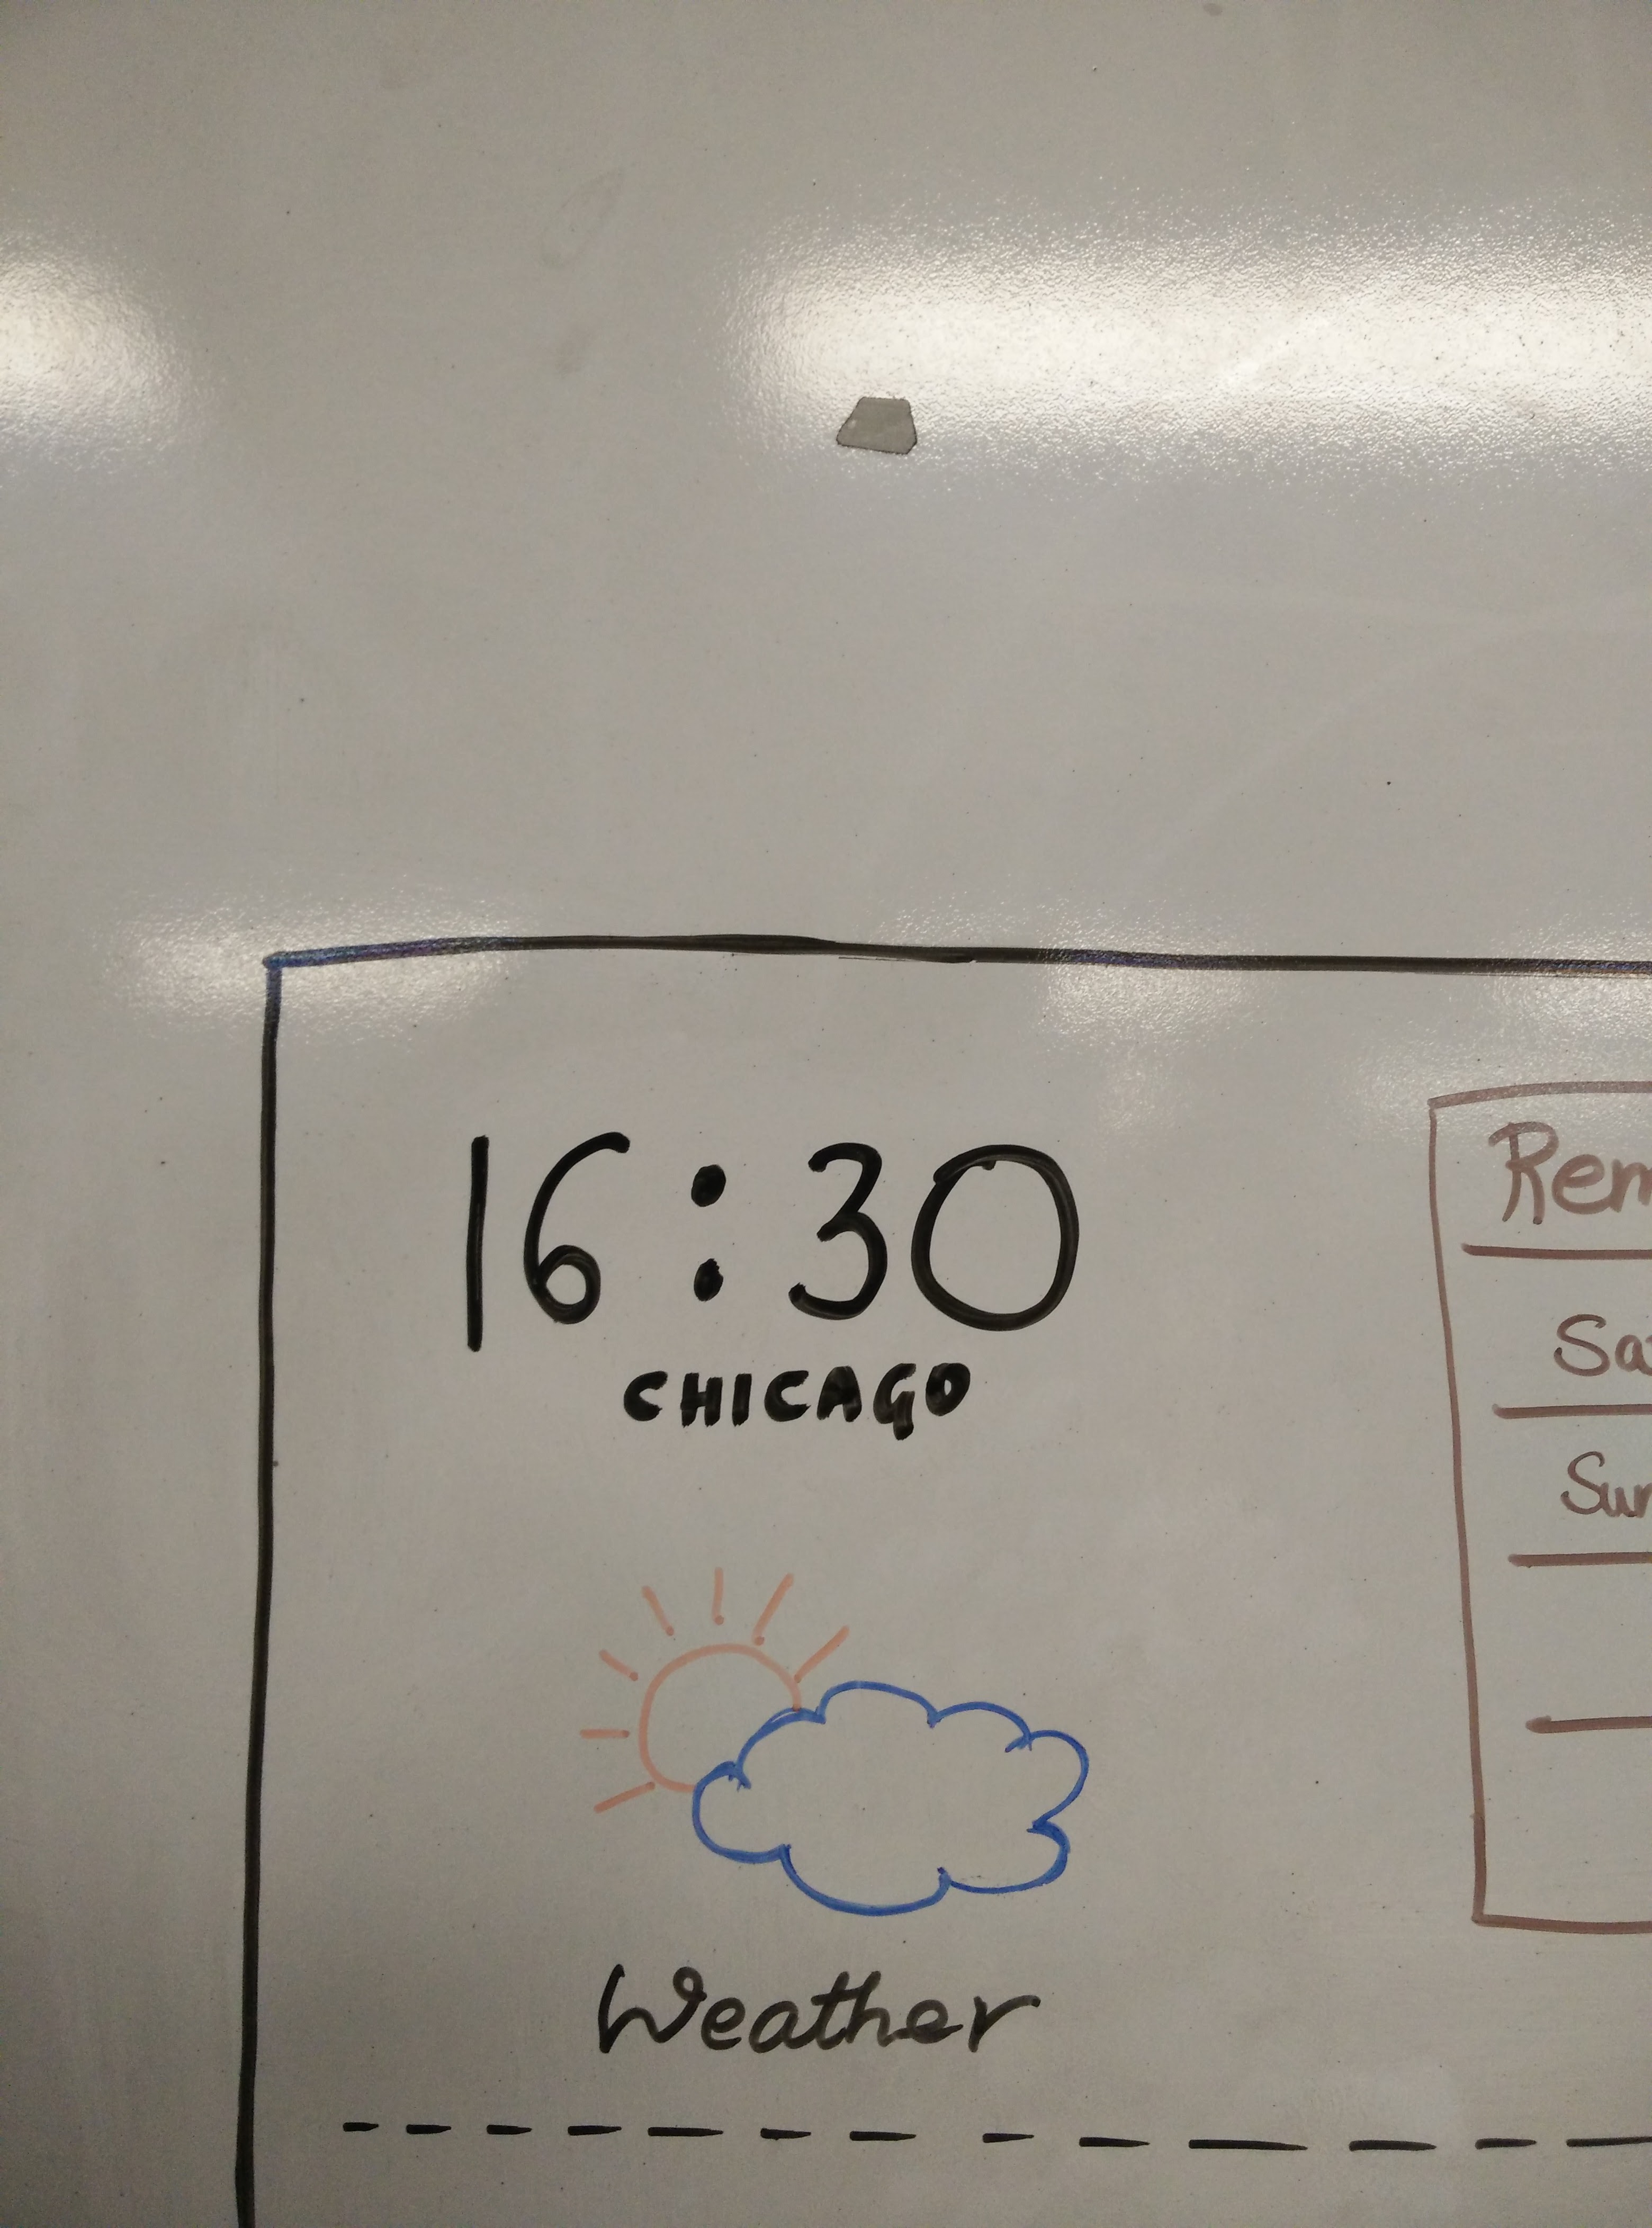 16:30
CHICAGO
Weather
Rem
Sat
Sun